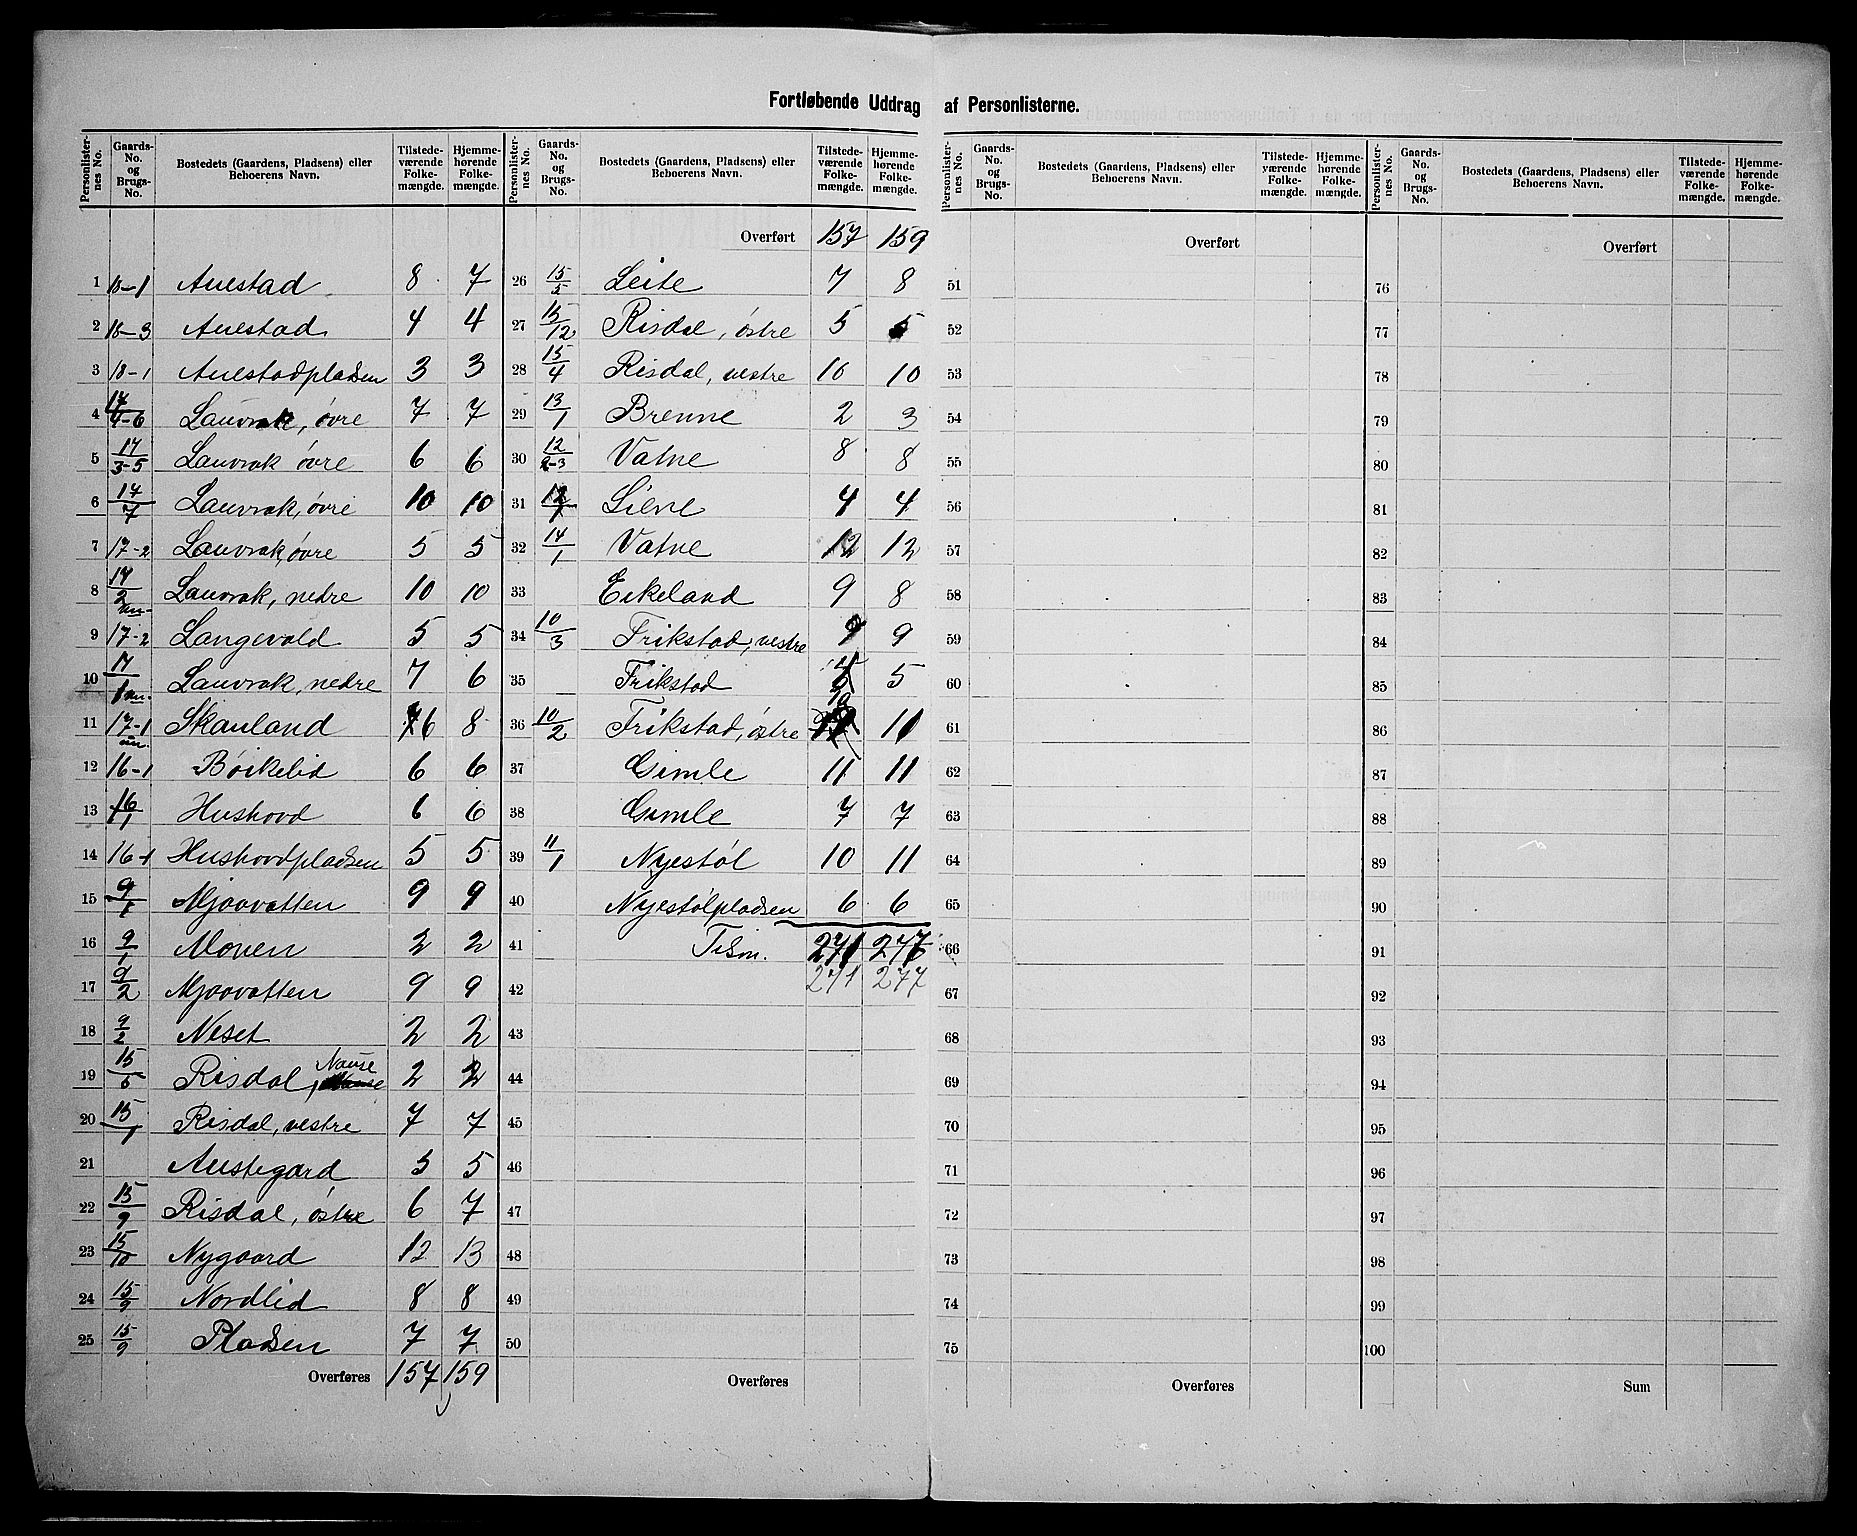 Fortløbende Uddrag af Personlisterne.
Personlister-nes No. Gaards-No. og Brugs-No. Bostedets (Gaardens, Pladsens) eller Beboerens Navn. Tilstede-værende Folke-mængde. Hjemme-hørende Folke-mængde.
Personlister-nes No. Gaards-No. og Brugs-No. Bostedets (Gaardens, Pladsens) eller Beboerens Navn. Tilstede-værende Folke-mængde. Hjemme-hørende Folke-mængde.
Personlister-nes No. Gaards-No. og Brugs-No. Bostedets (Gaardens, Pladsens) eller Beboerens Navn. Tilstede-værende Folke-mængde. Hjemme-hørende Folke-mængde.
Personlister-nes No. Gaards-No. og Brugs-No. Bostedets (Gaardens, Pladsens) eller Beboerens Navn. Tilstede-værende Folke-mængde. Hjemme-hørende Folke-mængde.
Overført 157 159 Overført Overført
1 18-1 Auestad 8 7 26 15/5 Leite 7 8 51 76
2 18-3 Auestad 4 4 27 15/12 Risdal, østre 5 5 52 77
3 18-1 Auestadpladsen 3 3 28 15/4 Risdal, vestre 10 10 53 78
4 17/4-6 Lauvrak, øvre 7 7 29 13/1 Brenne 2 3 54 79
5 17/3-5 Lauvrak øvre 6 6 30 12/2-3 Vatne 8 8 55 80
6 17/7 Lauvrak, øvre 10 10 31 12/1 Liene 4 4 56 81
7 17-2 Lauvrak, øvre 5 5 32 14/1 Vatne 12 12 57 82
8 17/2 Lauvrak, nedre 10 10 33 Eikeland 9 8 58 83
9 17-2 Langevold 5 5 34 10/3 Frikstad, vestre 9 9 59 84
10 17/1 un. Lauvrak, nedre 7 6 35 Frikstad 5 60 85
11 17-1 un. Skauland 6 8 36 10/2 Frikstad, østre 11 61 86
12 16-1 Bøikelid 6 6 37 Gimle 11 11 62 87
13 16/1 Hushovd 6 6 38 Gimle 7 7 63 88
14 16-1 Hushovdpladsen 5 5 39 11/1 Nyestøl 10 11 64 89
15 9/1 Mjaavatten 9 9 40 Nyestølpladsen 6 6 65 90
16 9/1 Moven 2 2 41 Tilsm. 271 277 66 91
17 9/2 Mjaavatten 9 9 42 271 277 67 92
18 9/2 Neset 2 2 43 68 93
19 15/5 Risdal, Nause 2 2 44 69 94
20 15/1 Risdal, vestre 7 7 45 70 95
21 Austegard 5 5 46 71 96
22 15/9 Risdal, østre 6 7 47 72 97
23 15/10 Nygaard 12 13 48 73 98
24 15/9 Nordlid 8 8 49 74 99
25 15/9 Pladsen 7 7 50 75 100
Overføres 157 159 Overføres Overføres Sum